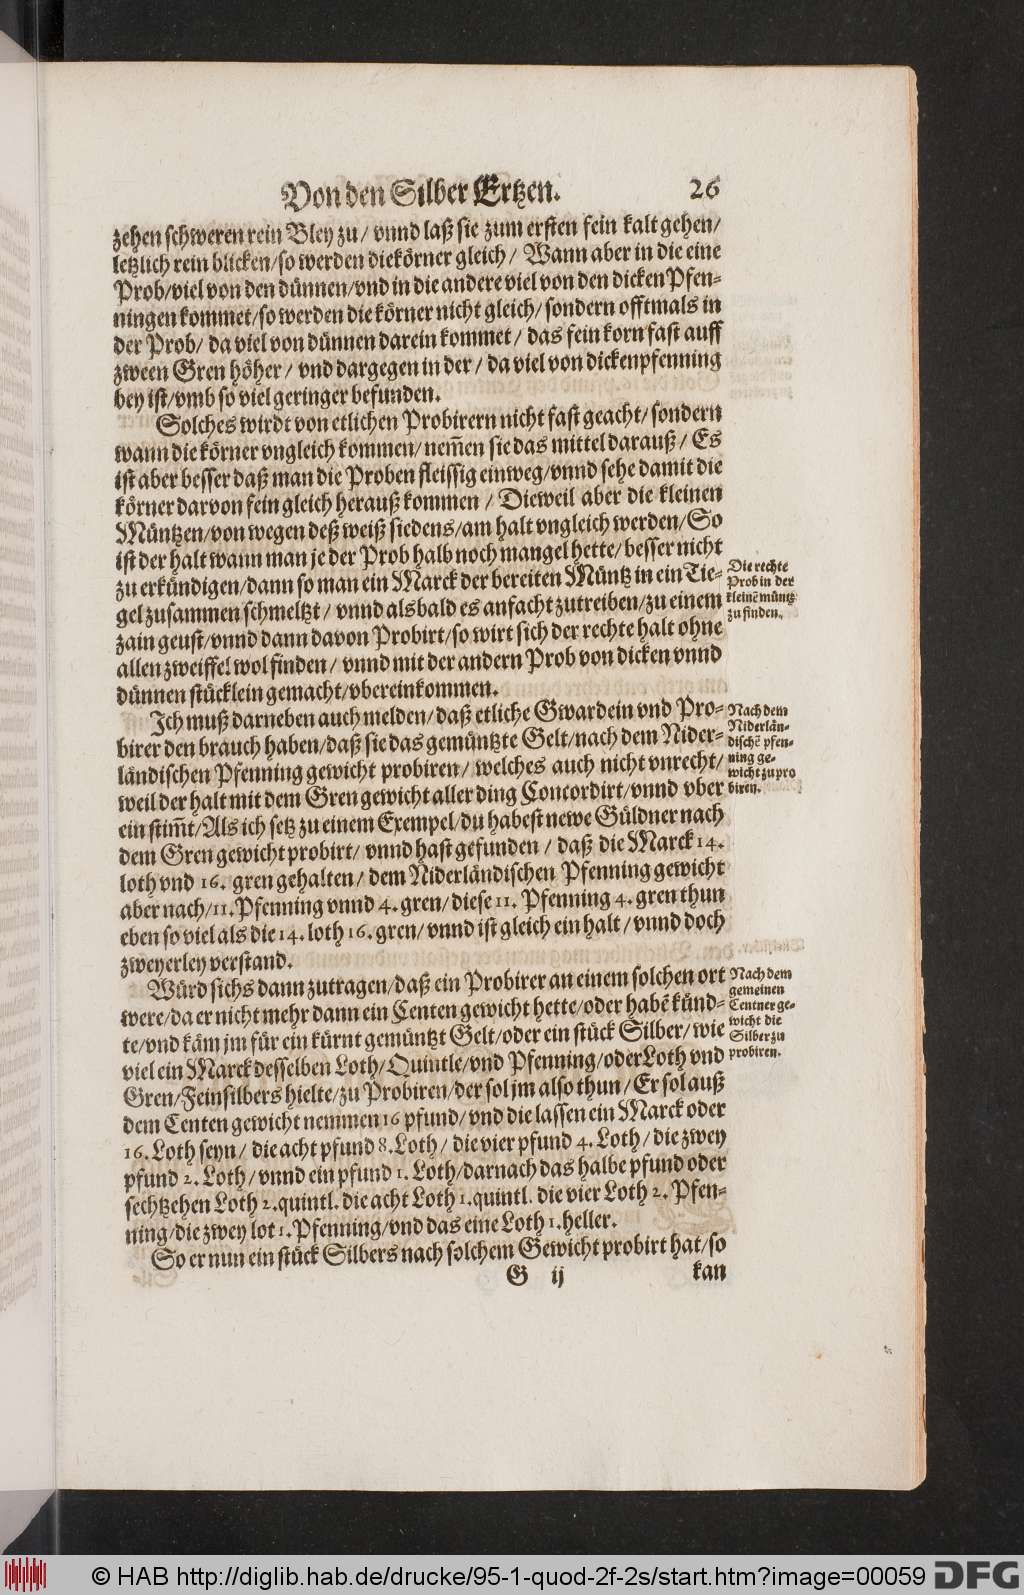 Von den Silber Ertzen. 26
zehen schweren rein Bley zu / vnnd laß sie zum ersten fein kalt gehen/
letzlich rein blicken/so werden die körner gleich / Wann aber in die eine
Prob/viel von den dünnen/vnd in die andere viel von den dicken Pfen-
ningen kommet/so werden die körner nicht gleich/sondern offtmals in
der Prob/ da viel von dünnen darein kommet / das fein korn fast auff
zween Gren höher / vnd dargegen in der / da viel von dickenpfenning
bey ist/vmb so viel geringer befunden.
Solches wirdt von etlichen Probirern nicht fast geacht/sondern
wann die körner vngleich kommen/nem̃en sie das mittel darauß / Es
ist aber besser daß man die Proben fleissig einweg/vnnd sehe damit die
körner darvon fein gleich herauß kommen / Dieweil aber die kleinen
Müntzen/von wegen deß weiß siedens/am halt vngleich werden/So
ist der halt wann man je der Prob halb noch mangel hette/besser nicht
zu erkündigen/dann so man ein Marck der bereiten Müntz in ein Tie-
gel zusammen schmeltzt / vnnd alsbald es anfacht zutreiben/zu einem
zain geust/vnnd dann davon Probirt/so wirt sich der rechte halt ohne
allen zweiffel wol finden / vnnd mit der andern Prob von dicken vnnd
dünnen stücklein gemacht/vbereinkommen.
Die rechte
Prob in der
kleinē müntz
zu finden.
Ich muß darneben auch melden/daß etliche Gwardein vnd Pro-
birer den brauch haben/daß sie das gemüntzte Gelt/nach dem Nider-
ländischen Pfenning gewicht probiren/ welches auch nicht vnrecht/
weil der halt mit dem Gren gewicht aller ding Concordirt/vnnd vber
ein stim̃t/Als ich setz zu einem Exempel/du habest newe Güldner nach
dem Gren gewicht probirt/ vnnd hast gefunden / daß die Marck 14.
loth vnd 16. gren gehalten/ dem Niderländischen Pfenning gewicht
aber nach/11. Pfenning vnnd 4. gren/ diese 11. Pfenning 4. gren thun
eben so viel als die 14. loth 16. gren/ vnnd ist gleich ein halt / vnnd doch
zweyerley verstand.
Nach dem
Niderlän-
dischē pfen-
ning ge-
wicht zu pro
biren.
Würd sichs dann zutragen/daß ein Probirer an einem solchen ort
were/da er nicht mehr dann ein Centen gewicht hette/oder habē künd-
te/vnd käm jm für ein kürnt gemüntzt Gelt/oder ein stück Silber/ wie
viel ein Marck desselben Loth/Quintle/vnd Pfenning/oder Loth vnd
Gren/Feinsilbers hielte/zu Probiren/der sol jm also thun / Er sol auß
dem Centen gewicht nemmen 16 pfund/vnd die lassen ein Marck oder
16. Loth seyn / die acht pfund 8. Loth / die vier pfund 4. Loth / die zwey
pfund 2. Loth / vnnd ein pfund 1. Loth/darnach das halbe pfund oder
sechtzehen Loth 2. quintl. die acht Loth 1. quintl. die vier Loth 2. Pfen-
ning/die zwey lot 1. Pfenning/vnd das eine Loth 1. heller.
Nach dem
gemeinen
Centner ge-
wicht die
Silber zu
probiren.
So er nun ein stück Silbers nach solchem Gewicht probirt hat/so
G ij kan
© HAB http://diglib.hab.de/drucke/95-1-quod-2f-2s/start.htm?image=00059 DFG